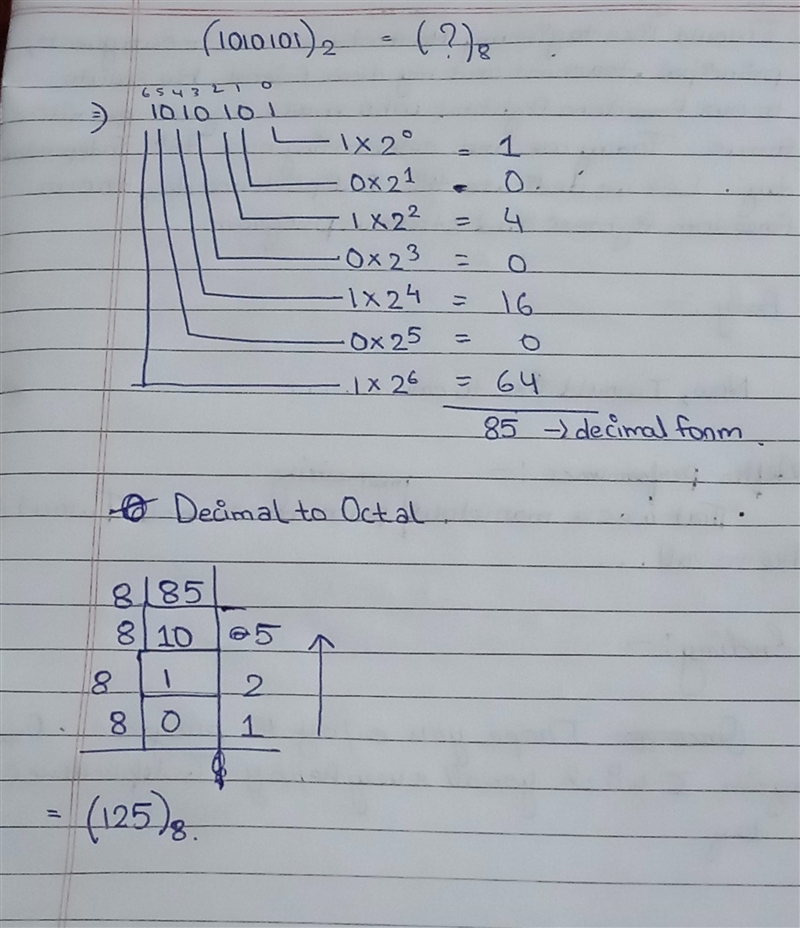 (1010101)₂ = (?)₈
6 5 4 3 2 1 0
⇒ 1010101
1 × 2⁰ = 1
0 × 2¹ = 0
1 × 2² = 4
0 × 2³ = 0
1 × 2⁴ = 16
0 × 2⁵ = 0
1 × 2⁶ = 64
85 → decimal form.
Decimal to Octal.
8 | 85
8 | 10 | 5
8 | 1 | 2
8 | 0 | 1
= (125)₈.